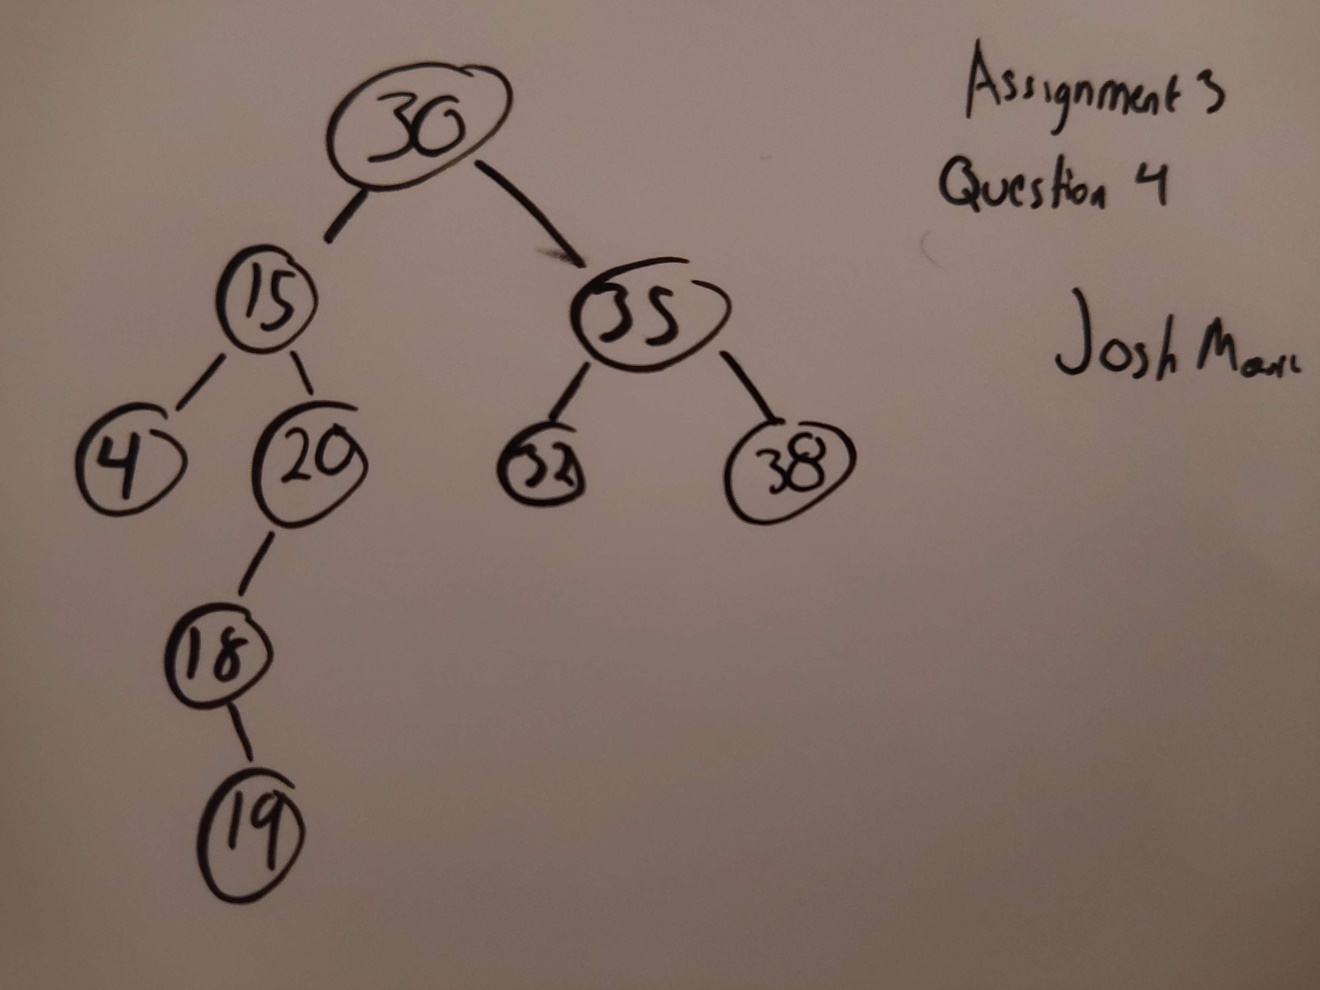 Assignment 3
Question 4
Josh
30
15
35
4
20
32
38
18
19